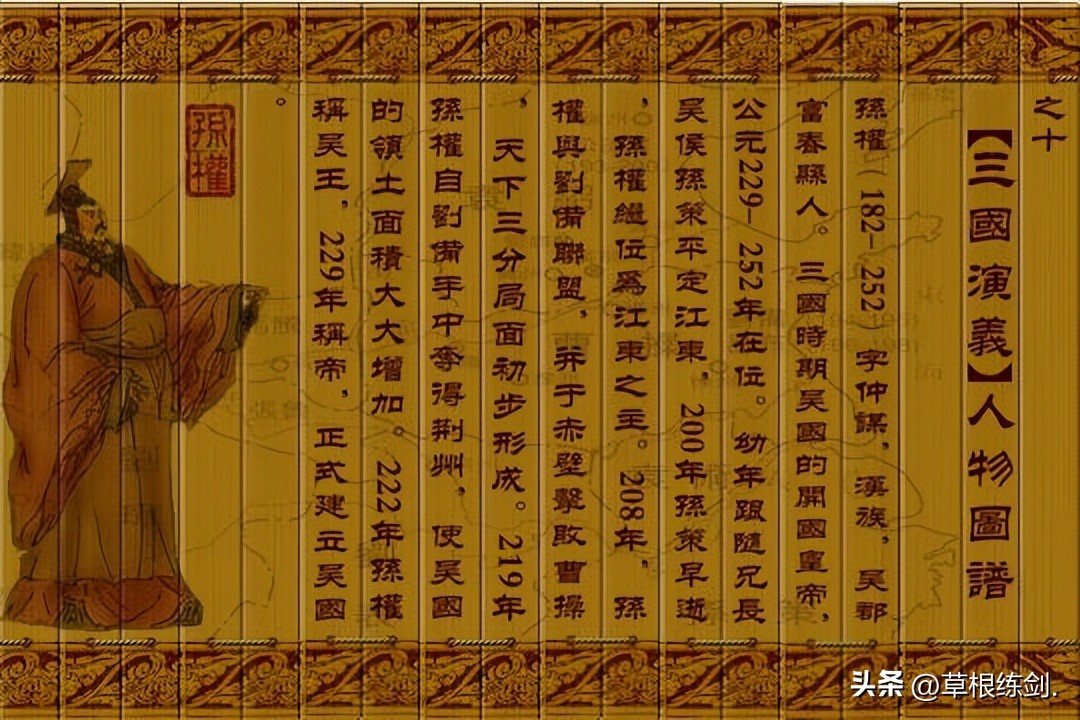 之十
【三國演義】人物圖譜
孫權（182—252）字仲謀，漢族，吴郡
富春縣人。三國時期吴國的開國皇帝，
公元229—252年在位。幼年跟隨兄長
吴侯孫策平定江東，200年孫策早逝
，孫權繼位爲江東之主。208年，孫
權與劉備聯盟，并于赤壁擊敗曹操
，天下三分局面初步形成。219年
孫權自劉備手中奪得荆州，使吴國
的領土面積大大增加。222年孫權
稱吴王，229年稱帝，正式建立吴國
。
孫權
头条 @草根练剑.